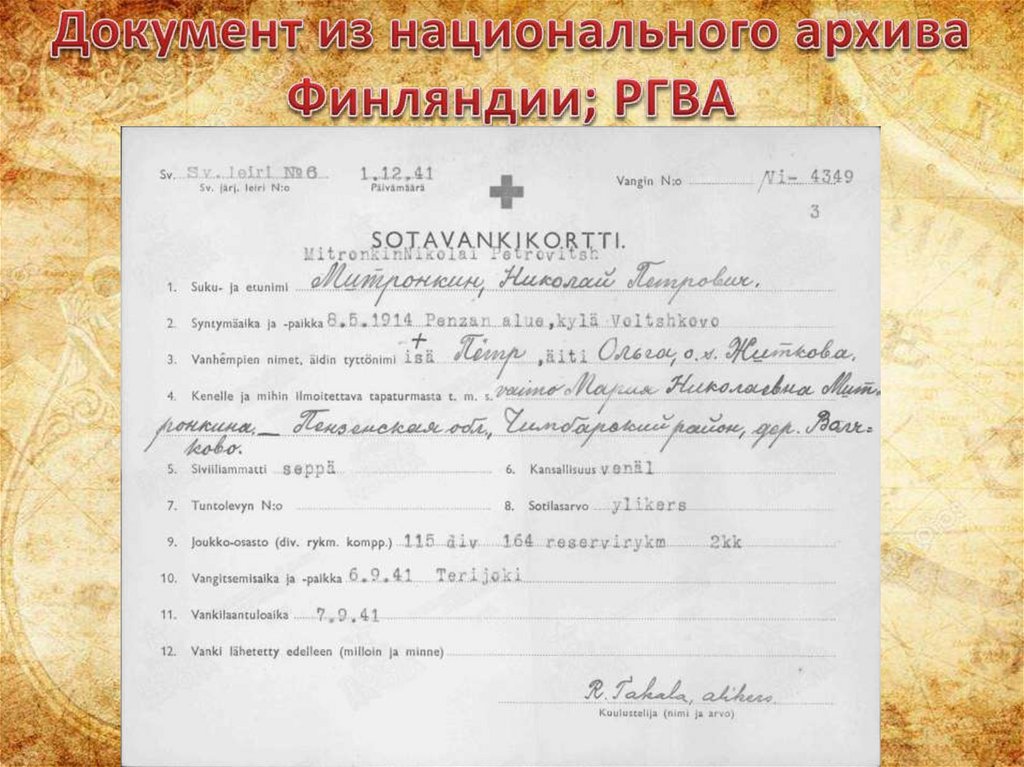 Документ из национального архива
Финляндии; РГВА
Sv. Sv. leiri №6 1.12.41 Vangin N:o /Vi- 4349
Sv. järj. leiri N:o Päivämäärä
3
SOTAVANKIKORTTI.
MitronkinNikolai Petrovitsh
1. Suku- ja etunimi Митронкин, Николай Петрович.
2. Syntymäaika ja -paikka 8.5.1914 Penzan alue,kylä Voltshkovo
3. Vanhempien nimet, äidin tyttönimi + isä Пётр ,äiti Ольга, o.s. Житкова.
4. Kenelle ja mihin ilmoitettava tapaturmasta t. m. s. vaimo Мария Николаевна Мит-
ронкина. — Пензенская обл., Чимбарский район, дер. Волч-
ково.
5. Siviiliammatti seppä 6. Kansallisuus venäl
7. Tuntolevyn N:o 8. Sotilasarvo ylikers
9. Joukko-osasto (div. rykm. kompp.) 115 div 164 reservirykm 2kk
10. Vangitsemisaika ja -paikka 6.9.41 Terijoki
11. Vankilaantuloaika 7.9.41
12. Vanki lähetetty edelleen (milloin ja minne)
R. Takala, alikers.
Kuulustelija (nimi ja arvo)